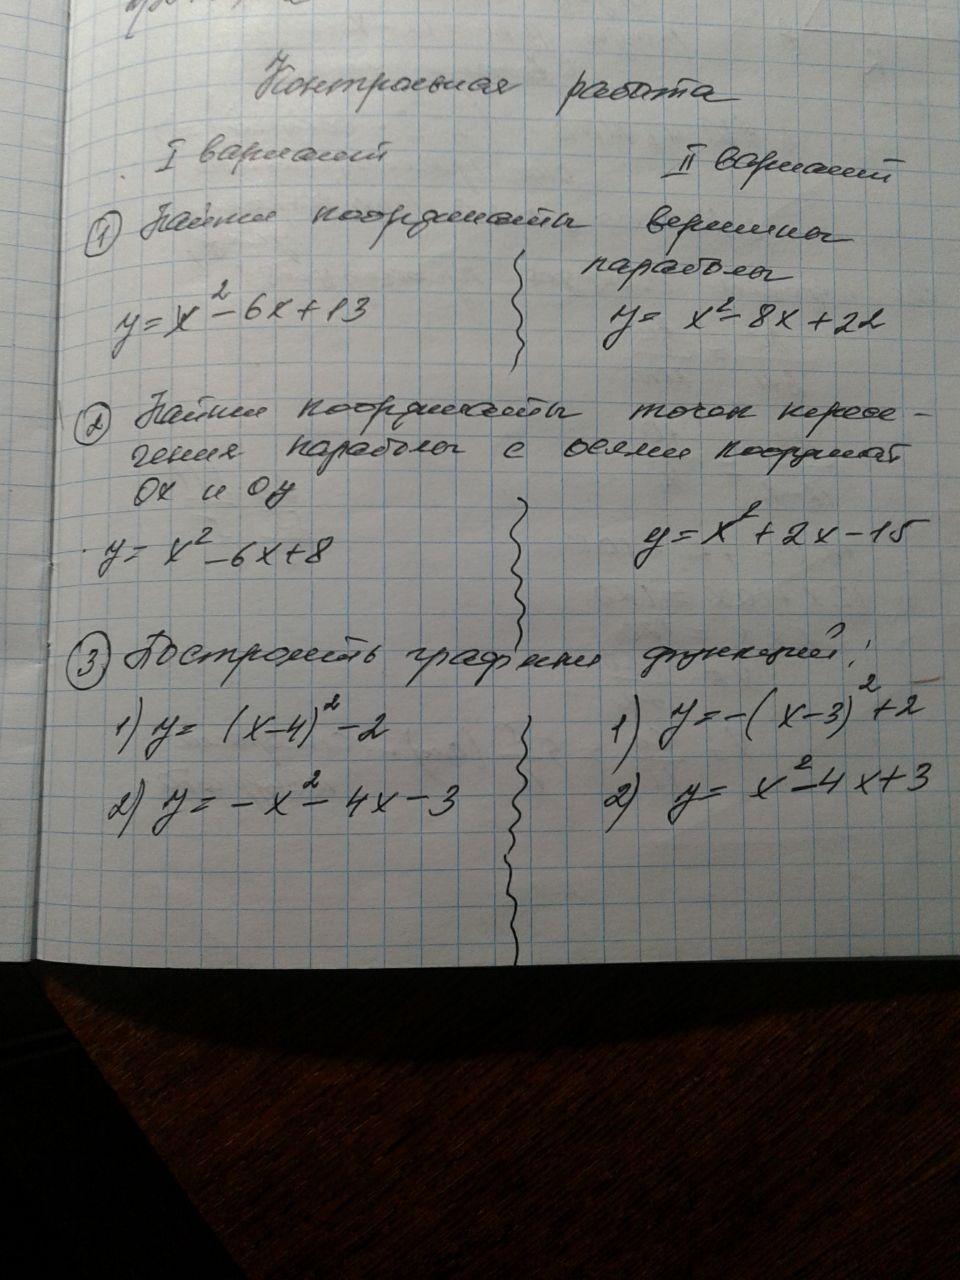 Контрольная работа
I вариант II вариант
① Найти координаты вершины
параболы
y = x² - 6x + 13 y = x² - 8x + 22
② Найти координаты точек пересе-
чения параболы с осями координат
Ox и Oy
y = x² - 6x + 8 y = x² + 2x - 15
③ Построить графики функций:
1) y = (x - 4)² - 2 1) y = -(x - 3)² + 2
2) y = -x² - 4x - 3 2) y = x² - 4x + 3